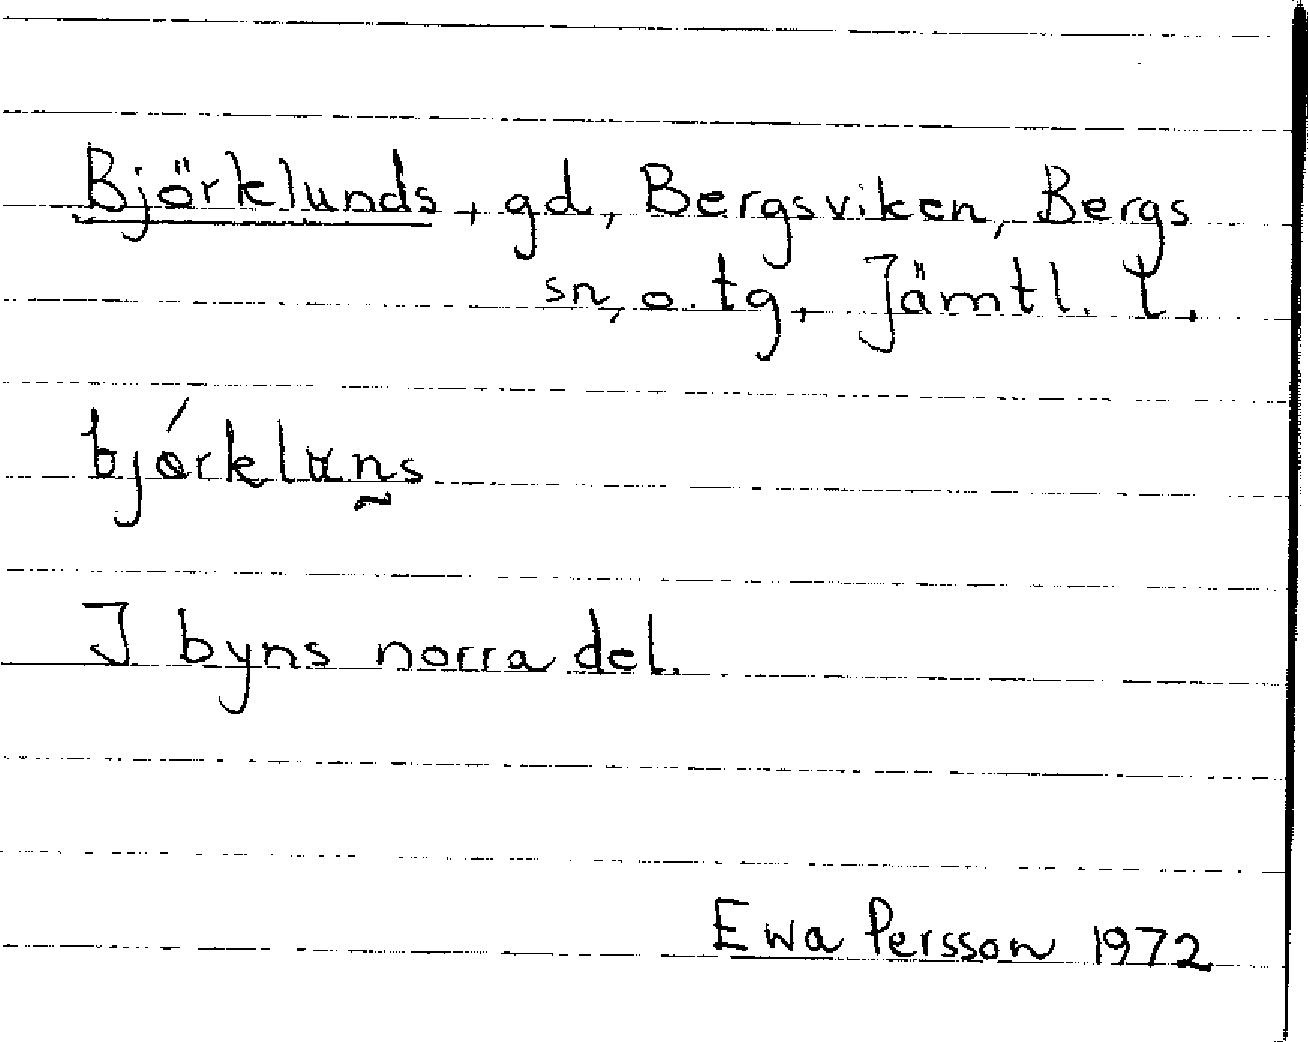 Björklunds, gd, Bergsviken, Bergs
sn, o. tg, Jämtl. l.
bjórkluns
I byns norra del.
Ewa Persson 1972